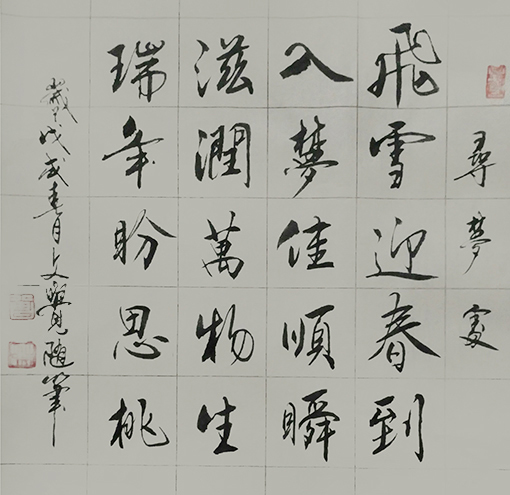 尋夢
飛雪迎春到
入夢佳順瞬
滋潤萬物生
瑞年盼思桃
歲戊戌月文隨筆